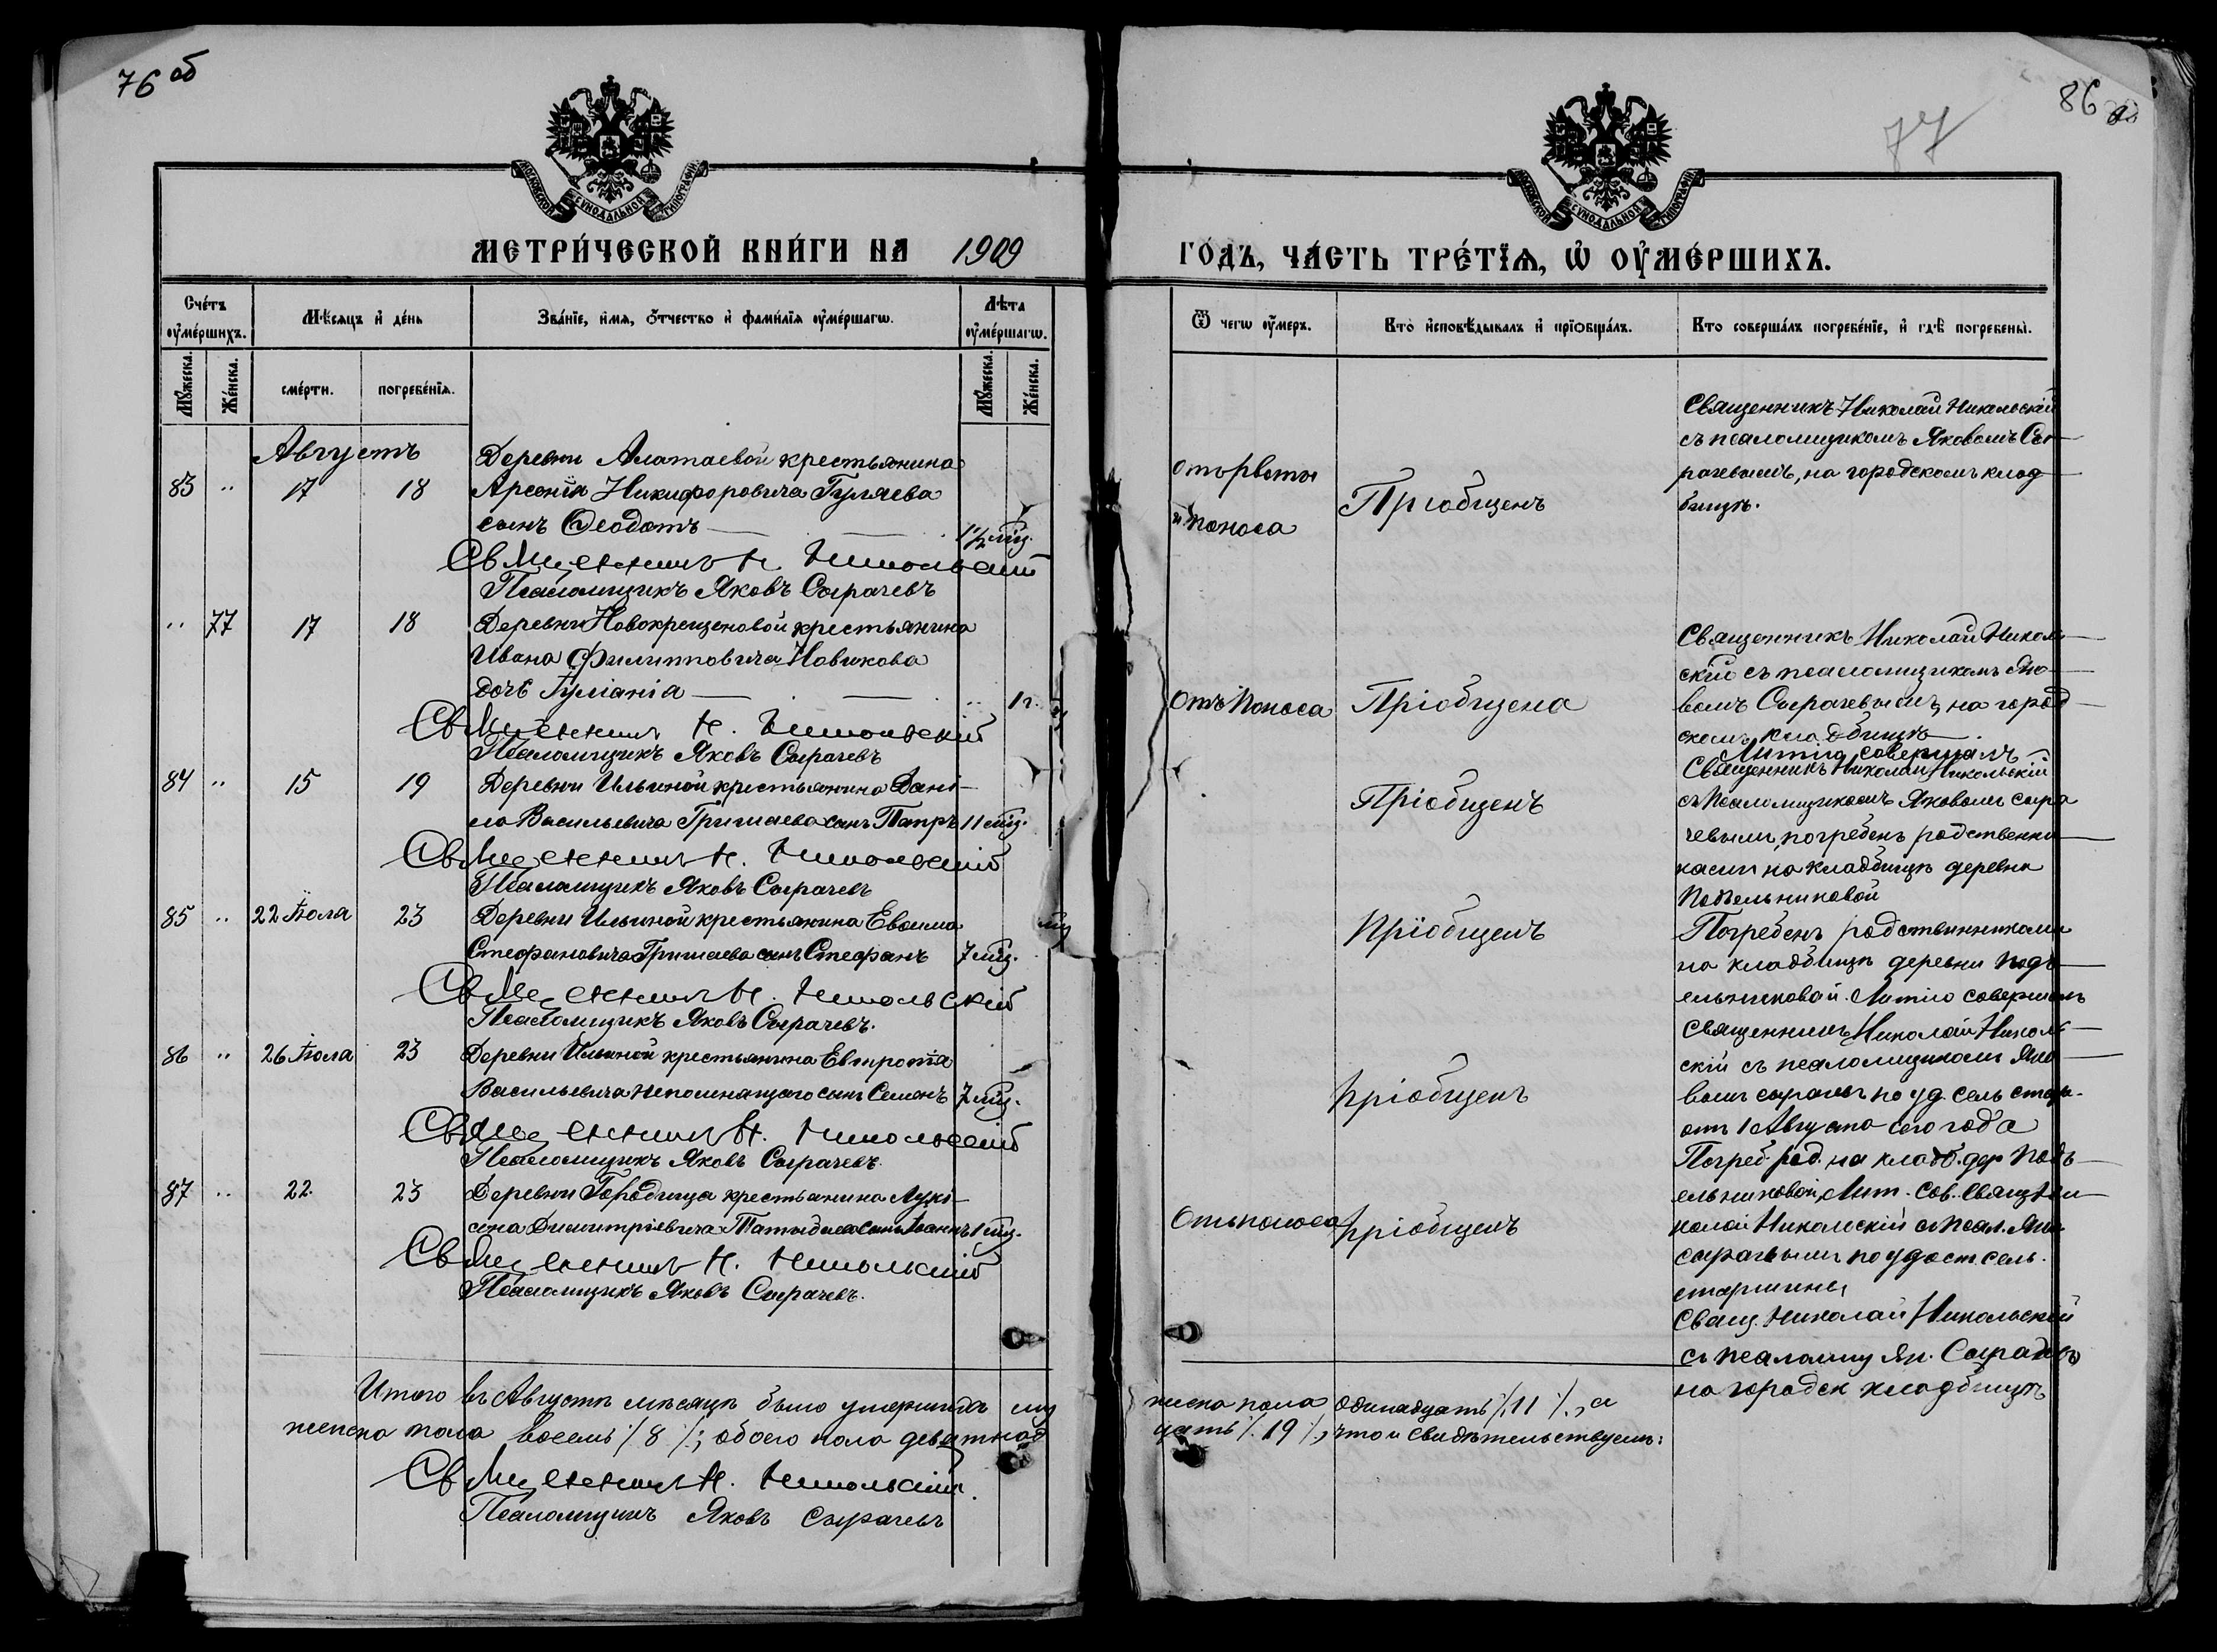 76 об
МОСКОВСКОЙ СѴНОДАЛЬНОЙ ТИПОГРАФІИ
МЕТРИ́ЧЕСКОЙ КНИ́ГИ НА 1909
Сче́тъ оу҆ме́ршихъ.
Мѣ́сяцъ и҆ де́нь
Зва́нїе, и҆́мя, ѻ҆́тчество и҆ фами́лїя оу҆ме́ршагѡ.
Лѣта оу҆ме́ршагѡ.
Мꙋ́жеска.
Же́нска.
сме́рти.
погребе́нїѧ.
Мꙋ́жеска.
Же́нска.
Августъ
83 " 17 18
Деревни Алатаевой крестьянина
Арсенія Никифоровича Гуляева
сынъ Ѳеодотъ — 1½ мѣс.
Священникъ Н. Никольскій
Псаломщикъ Яковъ Сырачевъ
" 77 17 18
Деревни Новокрещеновой крестьянина
Ивана Филипповича Новикова
дочь Іуліанія — " 1 г.
Священникъ Н. Никольскій
Псаломщикъ Яковъ Сырачевъ
84 " 15 19
Деревни Ильиной крестьянина Дані-
ла Васильевича Гришаева сынъ Петръ 11 мѣс.
Священникъ Н. Никольскій
Псаломщикъ Яковъ Сырачевъ
85 " 22 Іюля 23
Деревни Ильиной крестьянина Евѳима
Стефановича Гришаева сынъ Стефанъ 7 мѣс.
Священникъ Н. Никольскій
Псаломщикъ Яковъ Сырачевъ.
86 " 26 Іюля 23
Деревни Ильиной крестьянина Евтропія
Васильевича Непомнящаго сынъ Семенъ 7 мѣс.
Священникъ Н. Никольскій
Псаломщикъ Яковъ Сырачевъ.
87 " 22. 23
Деревни Городища крестьянина Лукі-
яна Димитріевича сынъ Іоаннъ 1 мѣс.
Священникъ Н. Никольскій
Псаломщикъ Яковъ Сырачевъ.
Итого въ Августѣ мѣсяцѣ было умершихъ му
женска пола восемь /. 8 /.; обоего пола девятнад
Священникъ Н. Никольскій.
Псаломщикъ Яковъ Сырачевъ
77
86
МОСКОВСКОЙ СѴНОДАЛЬНОЙ ТИПОГРАФІИ
ГО́ДЪ, ЧА́СТЬ ТРЕ́ТЇѦ, Ѡ҆ ОУ҆МЕ́РШИХЪ.
Ѿ чегѡ оу҆́меръ.
Кто̀ и҆сповѣ́дывалъ и҆ прїѡбща́лъ.
Кто соверша́лъ погребе́нїе, и҆ гдѣ̀ погребены̀.
отъ рвоты
и поноса
Пріобщенъ
Священникъ Николай Никольскій
съ псаломщикомъ Яковомъ Сы-
рачевымъ, на городскомъ клад
бищѣ.
Отъ поноса
Пріобщена
Священникъ Николай Николь-
скій съ псаломщикомъ Яко-
вомъ Сырачевымъ, на город-
скомъ кладбищѣ.
Пріобщенъ
Литію совершалъ
Священникъ Николай Никольскій
съ псаломщикомъ Яковомъ Сыра
чевымъ, погребенъ родственни-
ками на кладбищѣ деревни
Подъельниковой
Пріобщенъ
Погребенъ родственниками
на кладбищѣ деревни Подъ-
ельниковой. Литію совершалъ
Священникъ Николай Николь-
скій съ псаломщикомъ Яко-
Пріобщенъ
вомъ Сырачев. по уд. сель стар.
отъ 1 Августа сего года
Погреб. род. на кладб. дер. Подъ-
ельниковой, Лит. Сов. Священ Ни-
Отъ поноса
Пріобщенъ
колай Никольскій съ псал. Яко.
Сырачевымъ по удост. сель.
старшины
Свящ. Николай Никольскій
съ псаломщ Як. Сырачевъ
на городск кладбищѣ
жеска пола одинадцать /. 11 /., а
цать /. 19 /., что и свидѣтельствуемъ: